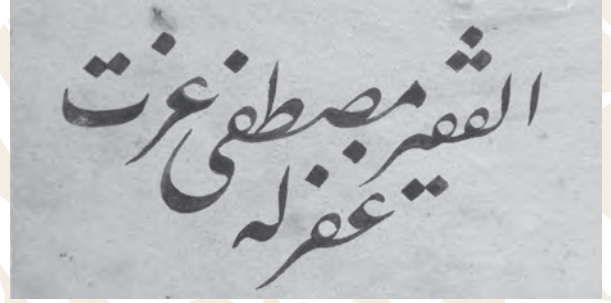 الفقير مصطفى عزت
غفر له